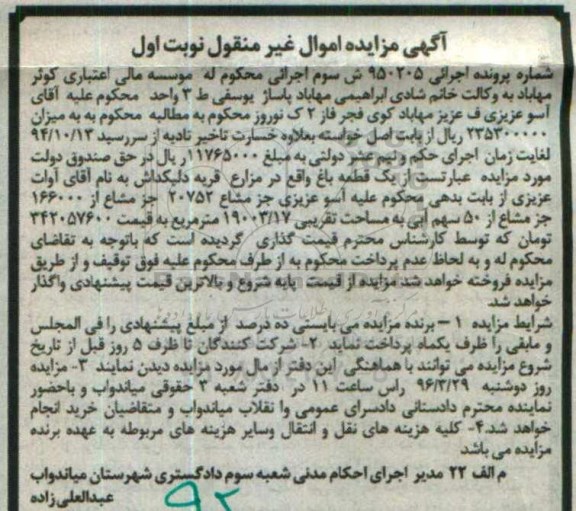 آگهی مزایده اموال غیر منقول نوبت اول
شماره پرونده اجرائی ۹۵۰۲۰۵ ش سوم اجرائی محکوم له موسسه مالی اعتباری کوثر
مهاباد به وکالت خانم شادی ابراهیمی مهاباد پاساژ یوسفی ط ۳ واحد محکوم علیه آقای
آسو عزیزی ف عزیز مهاباد کوی فجر فاز ۲ ک نوروز محکوم به مطالبه محکوم به به میزان
۲۳۵۳۰۰۰۰۰ ریال از بابت اصل خواسته بعلاوه خسارت تاخیر تادیه از سررسید ۹۴/۱۰/۱۳
لغایت زمان اجرای حکم و نیم عشر دولتی به مبلغ ۱۱۷۶۵۰۰۰ ریال در حق صندوق دولت
مورد مزایده عبارتست از یک قطعه باغ واقع در مزارع قریه دلیکداش به نام آقای آوات
عزیزی از بابت بدهی محکوم علیه آسو عزیزی جز مشاع ۲۰۷۵۲ جز مشاع از ۱۶۶۰۰۰
جز مشاع از ۵۰ سهم آبی به مساحت تقریبی ۱۹۰۰۳/۱۷ مترمربع به قیمت ۳۴۲۰۵۷۶۰۰
تومان که توسط کارشناس محترم قیمت گذاری گردیده است که باتوجه به تقاضای
محکوم له و به لحاظ عدم پرداخت محکوم به از طرف محکوم علیه فوق توقیف و از طریق
مزایده فروخته خواهد شد مزایده از قیمت پایه شروع و بالاترین قیمت پیشنهادی واگذار
خواهد شد.
شرایط مزایده ۱ – برنده مزایده می بایستی ده درصد از مبلغ پیشنهادی را فی المجلس
و مابقی را ظرف یکماه پرداخت نماید ۲- شرکت کنندگان تا ظرف ۵ روز قبل از تاریخ
شروع مزایده می توانند با هماهنگی این دفتر از مال مورد مزایده دیدن نمایند ۳- مزایده
روز دوشنبه ۹۶/۳/۲۹ راس ساعت ۱۱ در دفتر شعبه ۳ حقوقی میاندواب و باحضور
نماینده محترم دادستانی دادسرای عمومی وا نقلاب میاندواب و متقاضیان خرید انجام
خواهد شد.۴- کلیه هزینه های نقل و انتقال وسایر هزینه های مربوطه به عهده برنده
مزایده می باشد
م الف ۲۲ مدیر اجرای احکام مدنی شعبه سوم دادگستری شهرستان میاندواب
عبدالعلی زاده